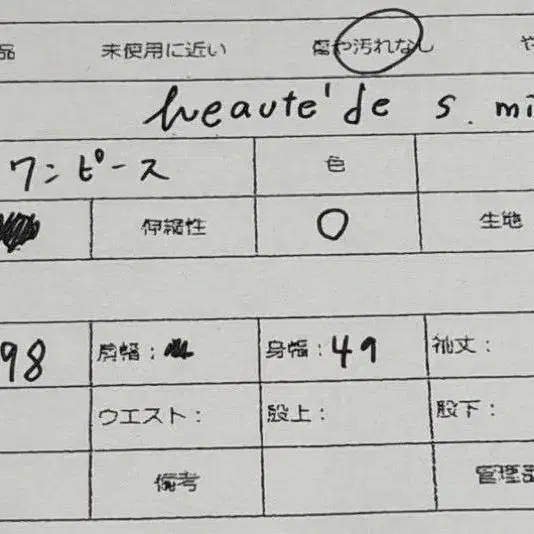 品 未使用に近い 傷や汚れなし や
heauté de s. mi
ワンピース 色
伸縮性 〇 生地
98 肩幅： 身幅：49 袖丈：
ウエスト： 股上： 股下：
備考 管理